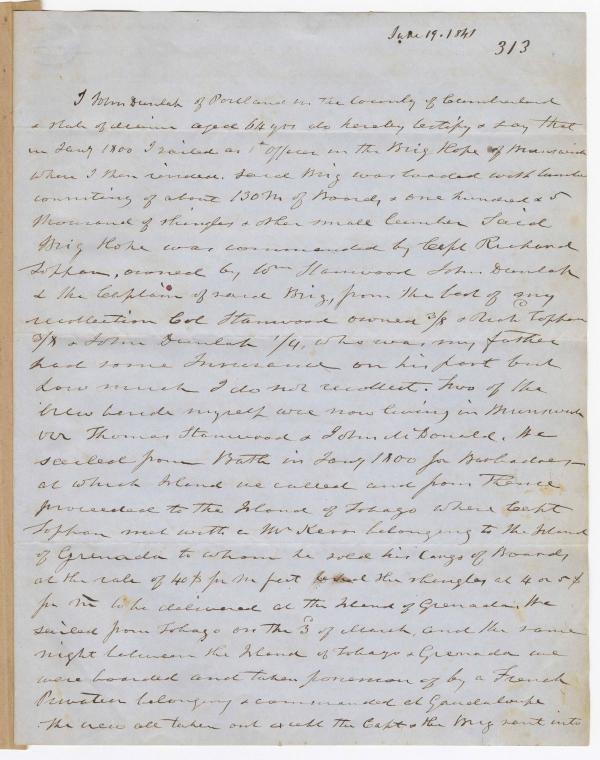 June 19. 1841
313
I John Dunlap of Portland in the County of Cumberland
& State of Maine aged 64 yrs do hereby certify & say that
in Jany 1800 I sailed as 1st Officer in the Brig Hope of Brunswick
where I then resided. Said Brig was loaded with lumber
consisting of about 130 M of Boards & one hundred & 5
thousand of shingles & other small lumber Said
Brig Hope was commanded by Capt Richard
Toppan, owned by Wm Stanwood John Dunlap
& the Captain of said Brig, from the best of my
recollection Col Stanwood owned 3/8 & Rich Toppan
3/8 & John Dunlap 1/4, who was my father
had some Insurance on his part but
how much I do not recollect. Two of the
crew beside myself are now living in Brunswick
viz Thomas Stanwood & John McDonald. We
sailed from Bath in Jany 1800 for Barbadoes
at which Island we called and from thence
proceeded to the Island of Tobago where Capt
Toppan met with a Mr Kerr belonging to the Island
of Grenada to whom he sold his Cargo of Boards
at the rate of 40$ pr M feet the shingles at 4 or 5$
pr M to be delivered at the Island of Grenada. We
sailed from Tobago on the 3d of March, and the same
night between the Island of Tobago & Grenada we
were boarded and taken possession of by a French
Privateer belonging & commanded at Guadaloupe
the crew all taken out except the Capt & the Brig sent into